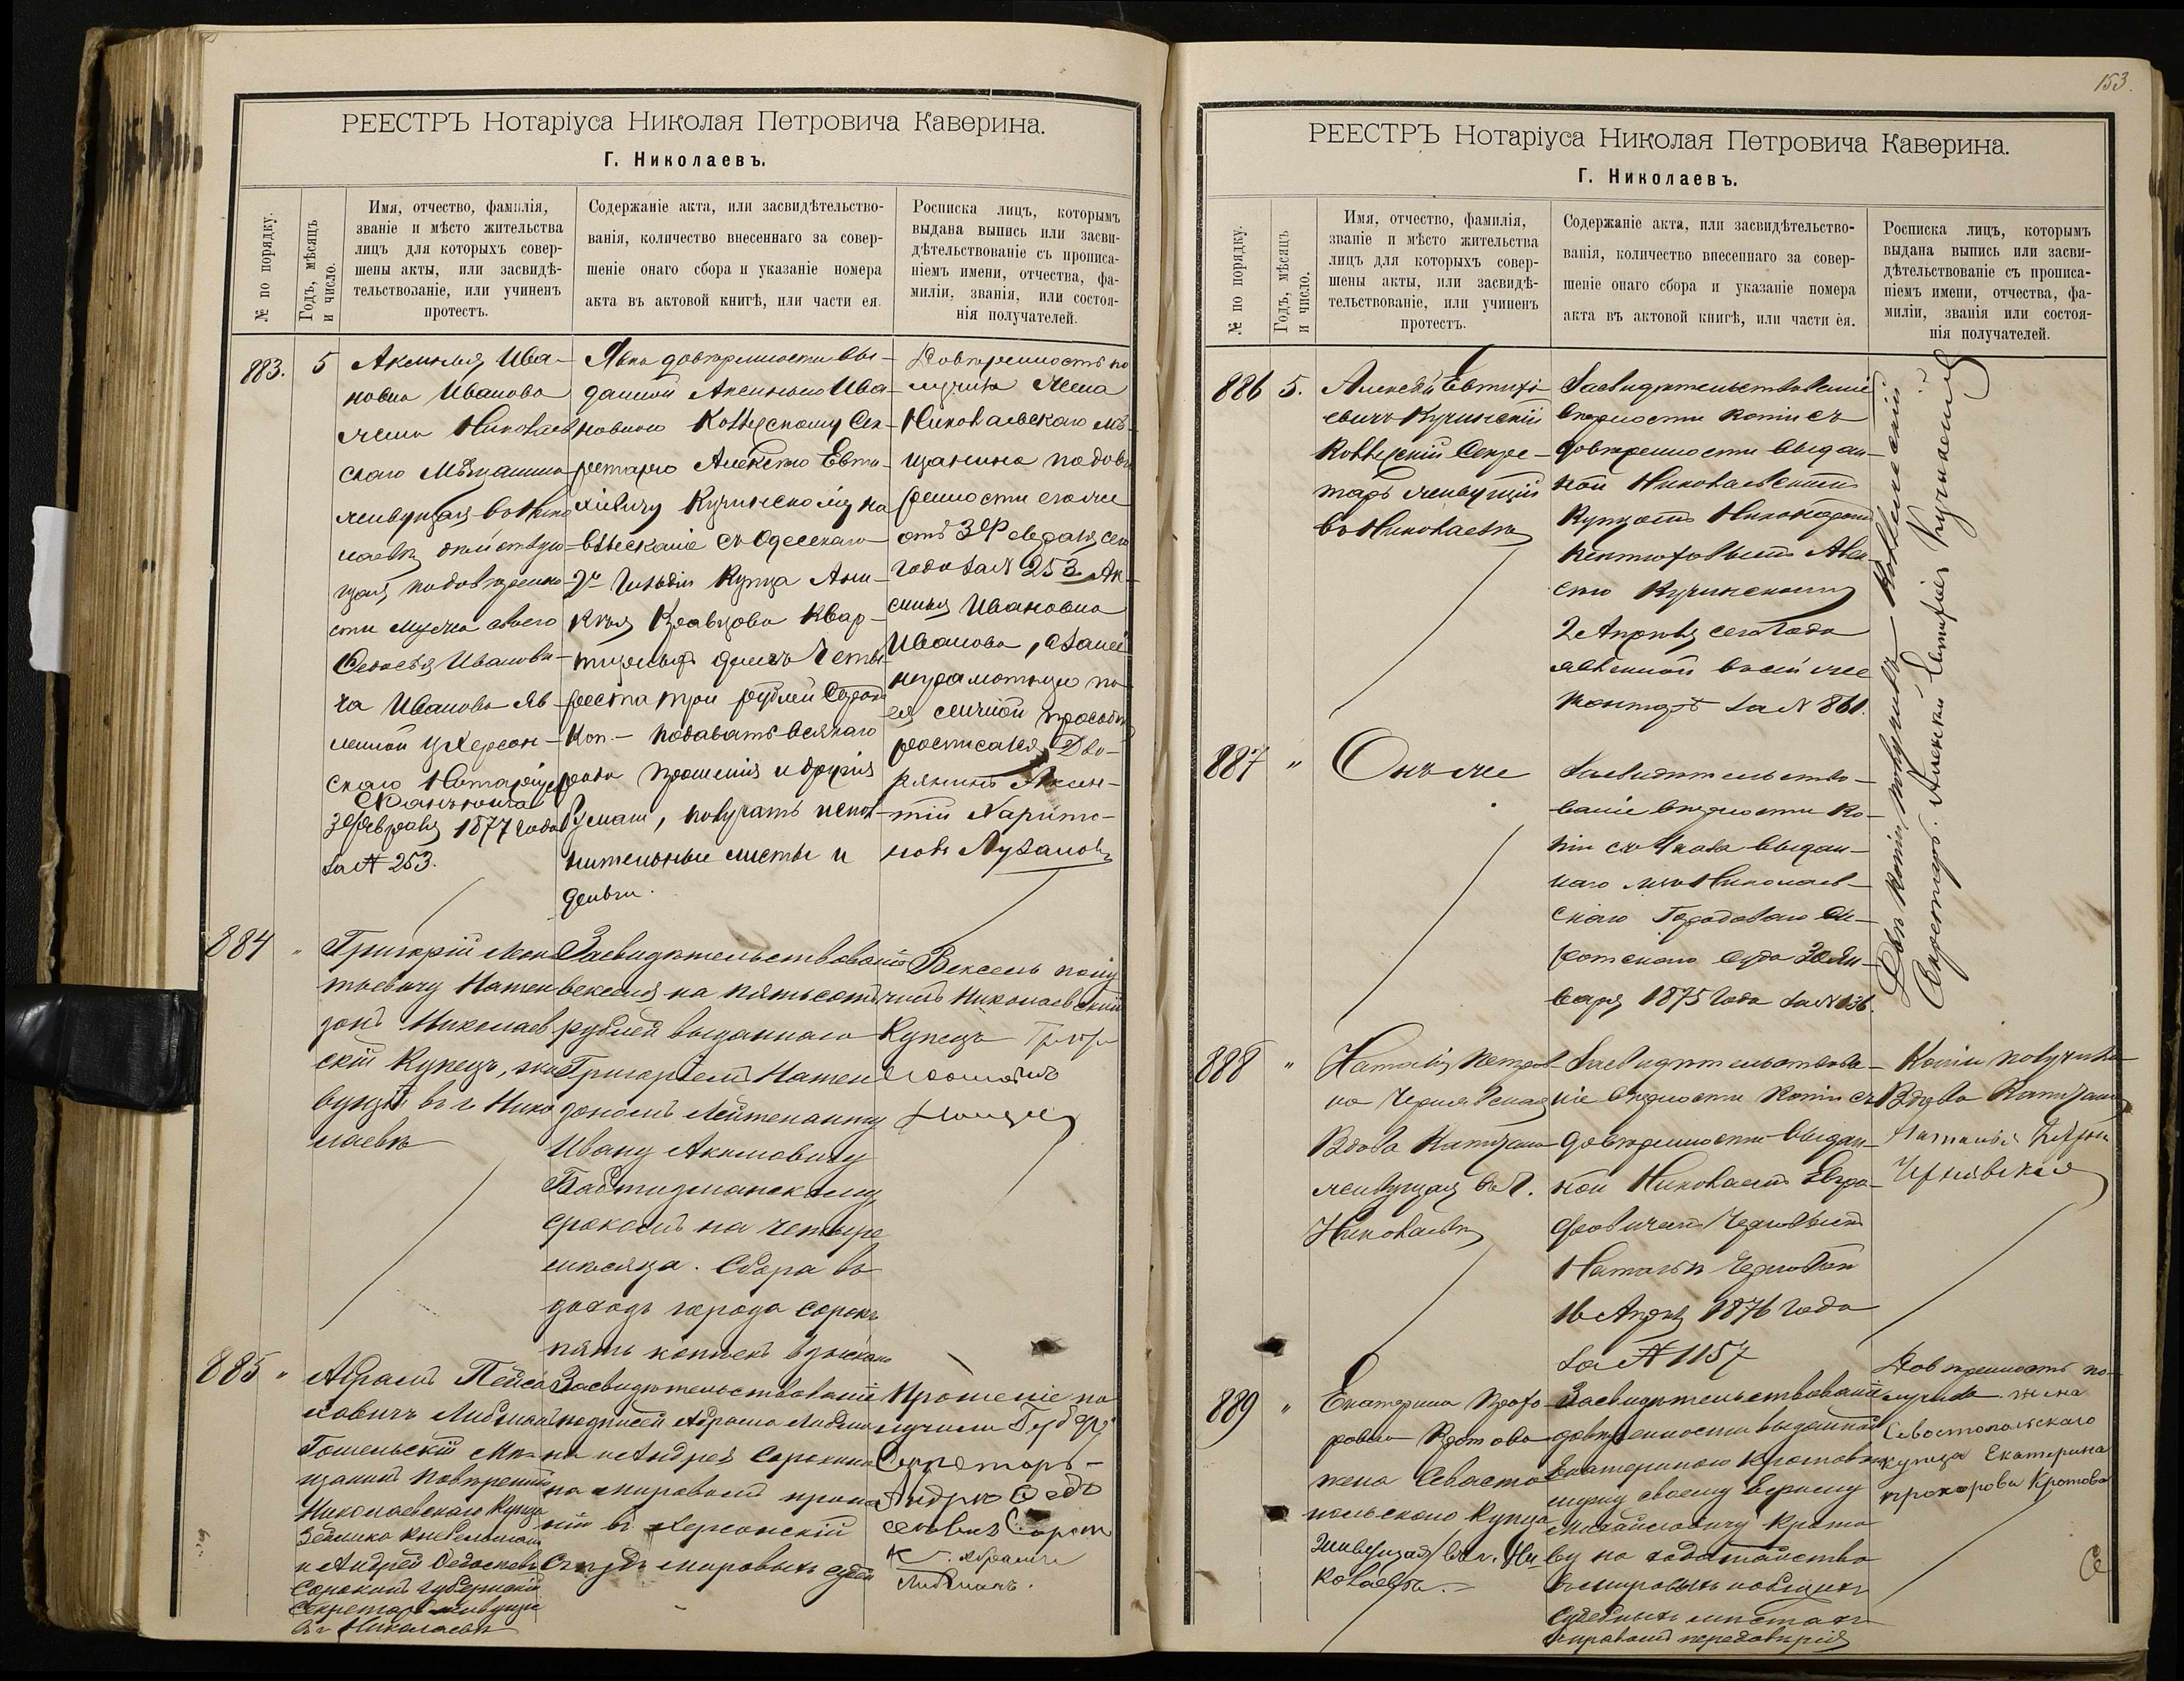 РЕЕСТРЪ Нотаріуса Николая Петровича Каверина.
Г. Николаевъ.
№ по порядку.
Годъ, мѣсяцъ
и число.
Имя, отчество, фамилія,
званіе и мѣсто жительства
лицъ для которыхъ совер-
шены акты, или засвидѣ-
тельствованіе, или учиненъ
протестъ.
Содержаніе акта, или засвидѣтельство-
ванія, количество внесеннаго за совер-
шеніе онаго сбора и указаніе номера
акта въ актовой книгѣ, или части ея.
Росписка лицъ, которымъ
выдана выпись или засви-
дѣтельствованіе съ прописа-
ніемъ имени, отчества, фа-
миліи, званія, или состоя-
нія получателей.
883.
5
Аксинья Ива-
новна Иванова
жена Николаев
скаго Мѣщанина
живущая въ Нико
лаевѣ дѣйствую-
щая по довѣренно
сти мужа своего
Иванови-
ча Иванова яв
ленной у Херсон-
скаго Нотаріуса
3 Февраля 1877 года
за № 253.
Явка довѣренности вы-
данной Аксиньею Ива-
новною Коллежскому Сек-
ретарю Алексѣю Евти-
хіевичу Кучинскому на
взысканіе съ Одесскаго
2й Гильдіи Купца
Кравцова Квар-
тирныхъ денегъ Четы-
реста три рублей
Коп. - подавать всякаго
рода прошенія и другія
бумаги, получать испол-
нительные листы и
деньги.
Довѣренность по
лучила Жена
Николаевскаго Мѣ-
щанина по довѣ
ренности его же
отъ 3 Февраля сего
года за № 253 Ак-
синья Ивановна
Иванова, а за нее
неграмотную по
ея личной просьбѣ
росписался Дво-
рянинъ Аксен-
тій Харито-
новъ Лузановъ
884
"
Григорій Леон
тьевичу Натен
зонъ Николаев
скій Купецъ, жи
вущій въ г. Нико
лаевѣ
Засвидѣтельствованіе
векселя на пятьсотъ
рублей выданнаго
Григоріемъ Натен
зономъ Лейтенанту
Ивану Акимовичу
срокомъ на четыре
мѣсяца. Сбора въ
доходъ города сорокъ
пять копѣекъ взыскано
Вексель полу
чилъ Николаевскій
Купецъ
885
"
Абрамъ Пейса
ховичъ Либманъ
Гомельскій Мѣ-
щанинъ повѣренный
Николаевскаго Купца
и Андрей Федосѣевъ
Сорокинъ Губернскій
Секретарь живущіе
въ г Николаевѣ
Засвидѣтельствованіе
подписей Абрама Либма
на и Андрея Сорокина
на мировомъ проше
ніи въ Херсонскій
Съѣздъ мировыхъ судей
Прошеніе по
лучили Губ
Секретарь-
Андрей Федо
сѣевъ Сорок
и. Абрамъ
Либманъ.
153.
РЕЕСТРЪ Нотаріуса Николая Петровича Каверина.
Г. Николаевъ.
№ по порядку.
Годъ, мѣсяцъ
и число.
Имя, отчество, фамилія,
званіе и мѣсто жительства
лицъ для которыхъ совер-
шены акты, или засвидѣ-
тельствованіе, или учиненъ
протестъ.
Содержаніе акта, или засвидѣтельство-
ванія, количество внесеннаго за совер-
шеніе онаго сбора и указаніе номера
акта въ актовой книгѣ, или части ея.
Росписка лицъ, которымъ
выдана выпись или засви-
дѣтельствованіе съ прописа-
ніемъ имени, отчества, фа-
миліи, званія или состоя-
нія получателей.
886
5.
Алексѣй Евтихі
евичъ Кучинскій
Коллежскій Секре-
тарь живущій
въ Николаевѣ
Засвидѣтельствованіе
вѣрности копіи съ
довѣренности выдан-
ной Николаевскимъ
Купцомъ
Алек
сѣю Кучинскому
2 Апрѣля сего года
явленной въ сей же
Конторѣ за № 861.
Двѣ копіи получилъ - Коллежскій
Секретарь. Алексѣй Евтихіев Кучинскій
887
"
Онъ же
Засвидѣтельство-
ваніе вѣрности ко-
піи съ Указа выдан-
наго изъ Николаев-
скаго Городоваго Си-
ротскаго Суда 30 Ян-
варя 1875 года за № 136.
888
"
Наталія Петров
на Чернявская
Вдова Капитана
живущая въ г.
Николаевѣ
Засвидѣтельствова-
ніе вѣрности копіи съ
довѣренности выдан-
ной Николаемъ
16 Апрѣля 1876 года
за № 1157
Копію получила
Вдова Капитана
Наталья Петров
Чернявская
889
"
Екатерина Прохо-
ровна Кротова
жена Севасто
польскаго Купца
Живущая въ г. Ни-
колаевѣ.
Засвидѣтельствованіе
довѣренности выданной
Екатериною Кротовой
мужу своему
Михайловичу Крото
ву на ходатайство
въ мировыхъ и общихъ
Судебныхъ мѣстахъ
съ правомъ передовѣрія
Довѣренность по-
лучила жена
Севастопольскаго
купца Екатерина
Прохорова Кротова